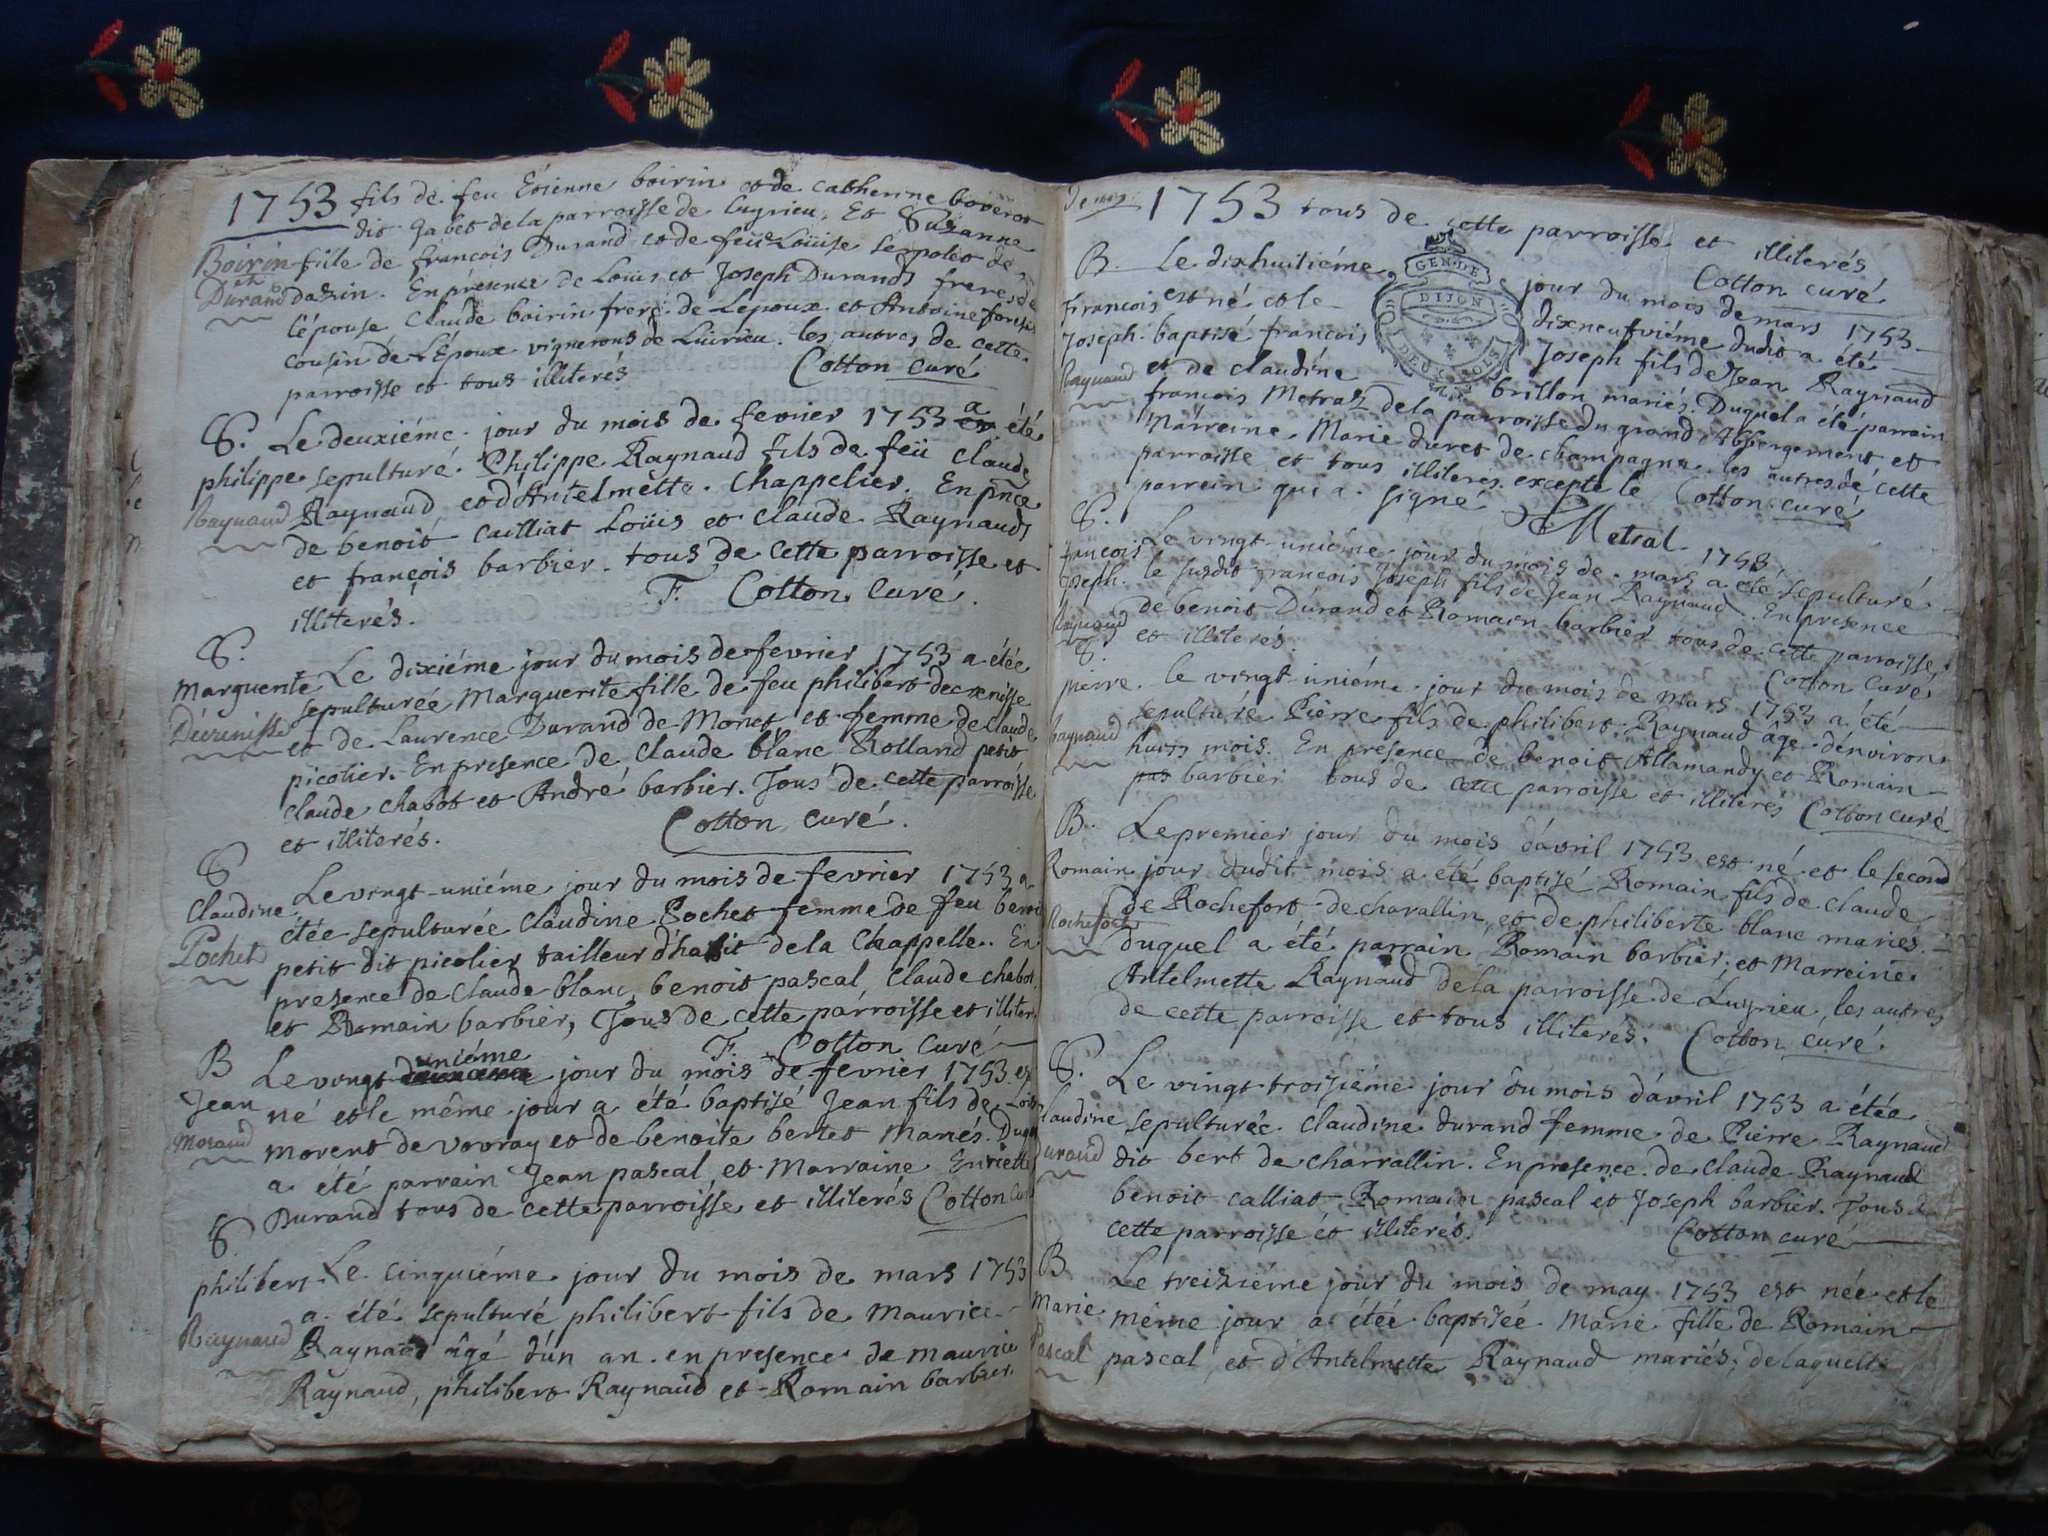 1753 fils de feu Etienne boirin et de Catherine boverot
dit gabet de la parroisse de Luyrieu, Et Suzanne
Boirin fille de francois Durand et de feüe Loüise
et
Durand dazin. En presence de Louis et Joseph Durands freres de
lépouse Claude boirin frere de Lepoux et Antoine
cousin de L'Epoux vignerons de Luirieu. les autres de cette
parroisse et tous illiterés Cotton curé
S. Le deuxiéme jour du mois de fevrier 1753 a été
philippe sepulturé Philippe Raynaud fils de feü Claude
Raynaud Raynaud et d'Antelmette Chappelier. En pnce
de benoit Cailliat Loüis et Claude Raynauds
et françois barbier. tous de cette parroisse et
illiterés. F. Cotton Curé.
S.
Marguerite Le dixiéme jour du mois de fevrier 1753 a étée
sepulturée Marguerite fille de feu philibert decrenisse
Décrenisse et de Laurence Durand de Monet et femme de Claude
picolier. En presence de Claude blanc Rolland petit
Claude chabot et André barbier. Tous de cette parroisse
et illiterés. Cotton curé.
S
Claudine Le vingt-uniéme jour du mois de fevrier 1753 a
étée sepulturée Claudine Pochet femme de feu benoi
Pochet petit dit picolier tailleur d'habit de la Chappelle. En
presence de Claude blanc, benoit pascal, Claude chabot,
et Romain barbier, Tous de cette parroisse et illiter.
F. Cotton Curé
B Le vingt uniéme jour du mois de fevrier 1753 est
Jean né et le même jour a été baptisé Jean fils de Loüis
Morand morent de vovray et de benoite bertet Mariés. Duquel
a été parrain Jean pascal et Marraine Enriette
Durand tous de cette parroisse et illiterés Cotton Curé
S
philibert Le cinquiéme jour du mois de mars 1753
a été sepulturé philibert fils de Maurice
Raynaud Raynaud âgé d'un an. en presence de maurice
Raynaud, philibert Raynaud et Romain barbier.
1753 tous de cette parroisse et illiterés
Cotton curé
GEN. DE
DIJON
DEUX SOLS
B. Le dixhuitiéme jour du mois de mars 1753
francois est né et le dixneufviéme dudit a été
Joseph baptisé francois Joseph fils de Jean Raynaud
Raynaud et de claudine brillon mariés. Duquel a été parrain
francois Metral de la parroisse du grand Abbergement et
Marreine Marie duret de champagne. les autres de cette
parroisse et tous illiterés. excepté le
parrein qui a signé Cotton curé
Metral
S.
francois Le vingt-uniéme jour du mois de mars 1753 a été sepulturé
Joseph. le susdit francois Joseph fils de Jean Raynaud. En presence
Raynaud de benoit Durand et Romain barbier tous de cette parroisse
et illiterés. Cotton Curé
S.
pierre. le vingt-uniéme jour du mois de mars 1753 a été
sepulturé Pierre fils de philibert Raynaud âgé dénviron
Raynaud huit mois. En presence de benoit Allamandy et Romain
pas barbier tous de cette parroisse et illiterés Cotton curé
B. Le premier jour du mois d'avril 1753 est né et le second
Romain jour dudit mois a été baptisé Romain fils de Claude
Rochefort de Rochefort de charallin et de philiberte blanc mariés.
duquel a été parrain Romain barbier, et Marreine
Antelmette Raynaud de la parroisse de Luyrieu, les autres
de cette parroisse et tous illiterés. Cotton curé.
S. Le vingt-troisiéme jour du mois d'avril 1753 a étéa
Claudine sepulturée Claudine durand femme de Pierre Raynaud
Durand dit bert de charrallin. En presence de Claude Raynaud
benoit calliat, Romain pascal et Joseph barbier. Tous de
cette parroisse et illiterés. Cotton curé
B Le treiziéme jour du mois de may 1753 est née et le
Marie même jour a étée baptisée Marie fille de Romain
Pascal pascal, et d'Antelmette Raynaud mariés; de laquelle